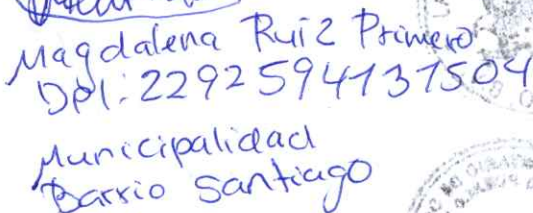 Magdalena Ruiz Primero
DPI: 2292594131504
Municipalidad
Barrio Santiago